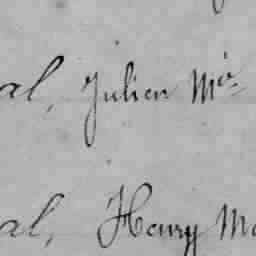 al, Julien Mic
al, Henry Ma